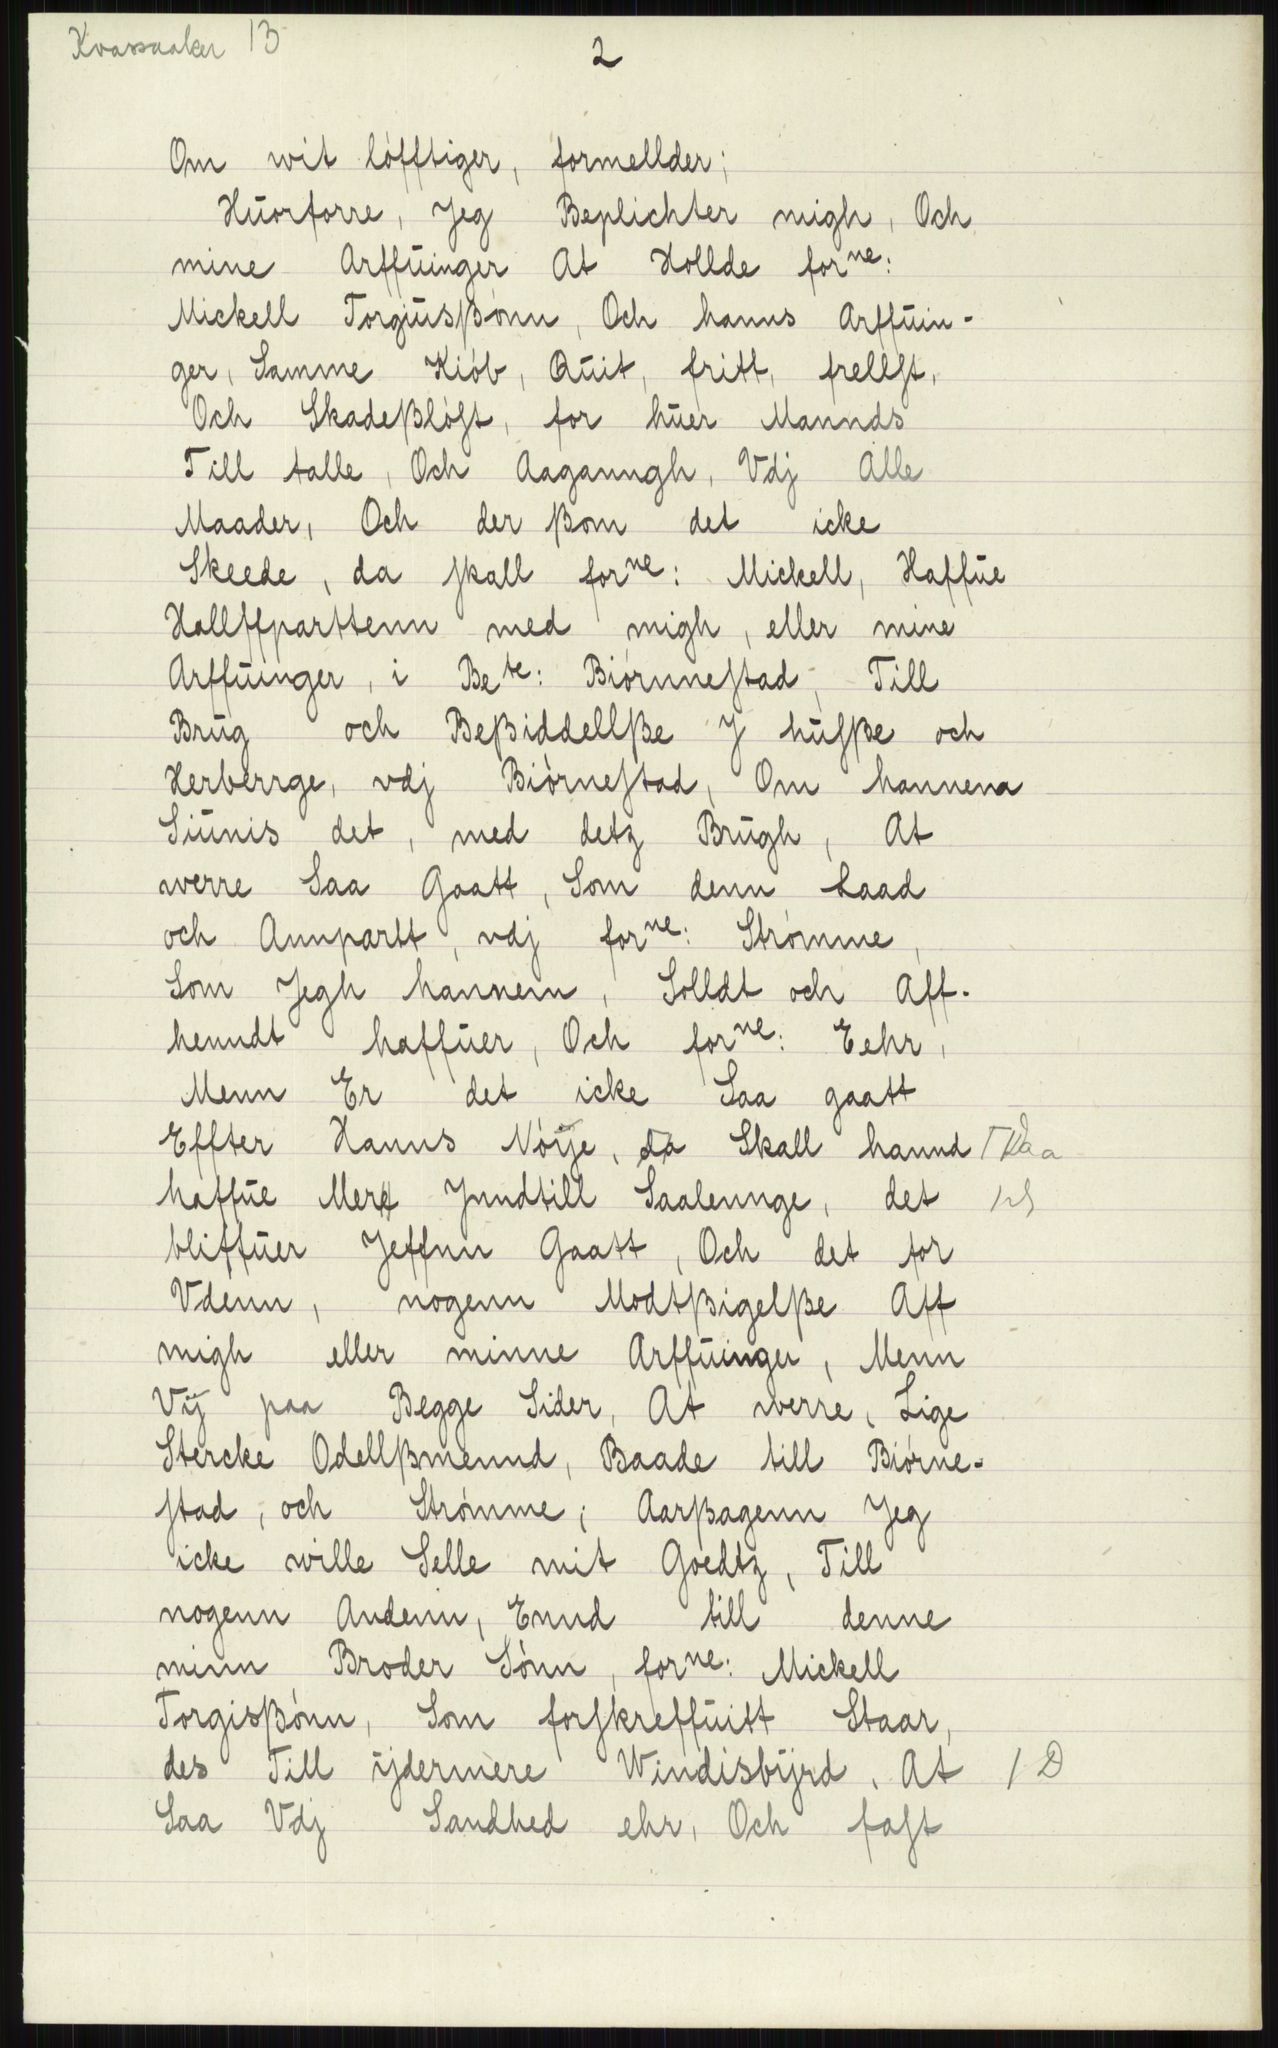 Kvassaaker 13
2
Om wit löfftiger, formellder;
Huorforre, Jeg Beplichter migh, Och
mine Arffuinger At Hollde forne:
Mickell Torgiusßónn, Och hanns Arffuin-
ger, Samme Kiób, Quit, fritt, frellst,
Och Skadeßlóst, for huer Mannds
Till talle, Och Aaganngh, Vdj Alle
Maader, Och der ßom det icke
Skeede, da skall forne: Mickell, Haffue
Hallffparttenn med migh, eller mine
Arffuinger, i Bete: Biórnnestad, Till
Brug och Beßiddellße J husße och
Herberrge, vdj Biórnestad, Om hannem
Siunis det, med detz Brugh, At
werre Saa Gaatt, Som denn Laad
och Annpartt, vdj forne: Strómme,
Som Jegh hannem, Solldt och Aff-
henndt haffuer, Och forne: Eehr,
Menn Er det icke Saa gaatt
Effter Hanns Nóije, da Skall hannd ⌈Daa
haffue Mere Jnndtill Saalennge, det
bliffuer Jeffnn Gaatt, Och det for
Vdenn, nogenn Modtßigelße Aff
migh eller minne Arffuinger, Menn
Vij paa Begge Sider, At werre, Lige
Stercke Odellßmennd, Baade till Biórne-
stad, och Strómme; Aarßagenn Jeg
icke wille Selle mit Goedtz, Till
nogenn Andenn, Ennd till denne
minn Broder Sónn, forne: Mickell
Torgisßónn, Som forskreffuitt Staar,
des Till ijdermere Windisbijrd, At / D
Saa Vdj Sandhed ehr, Och fast